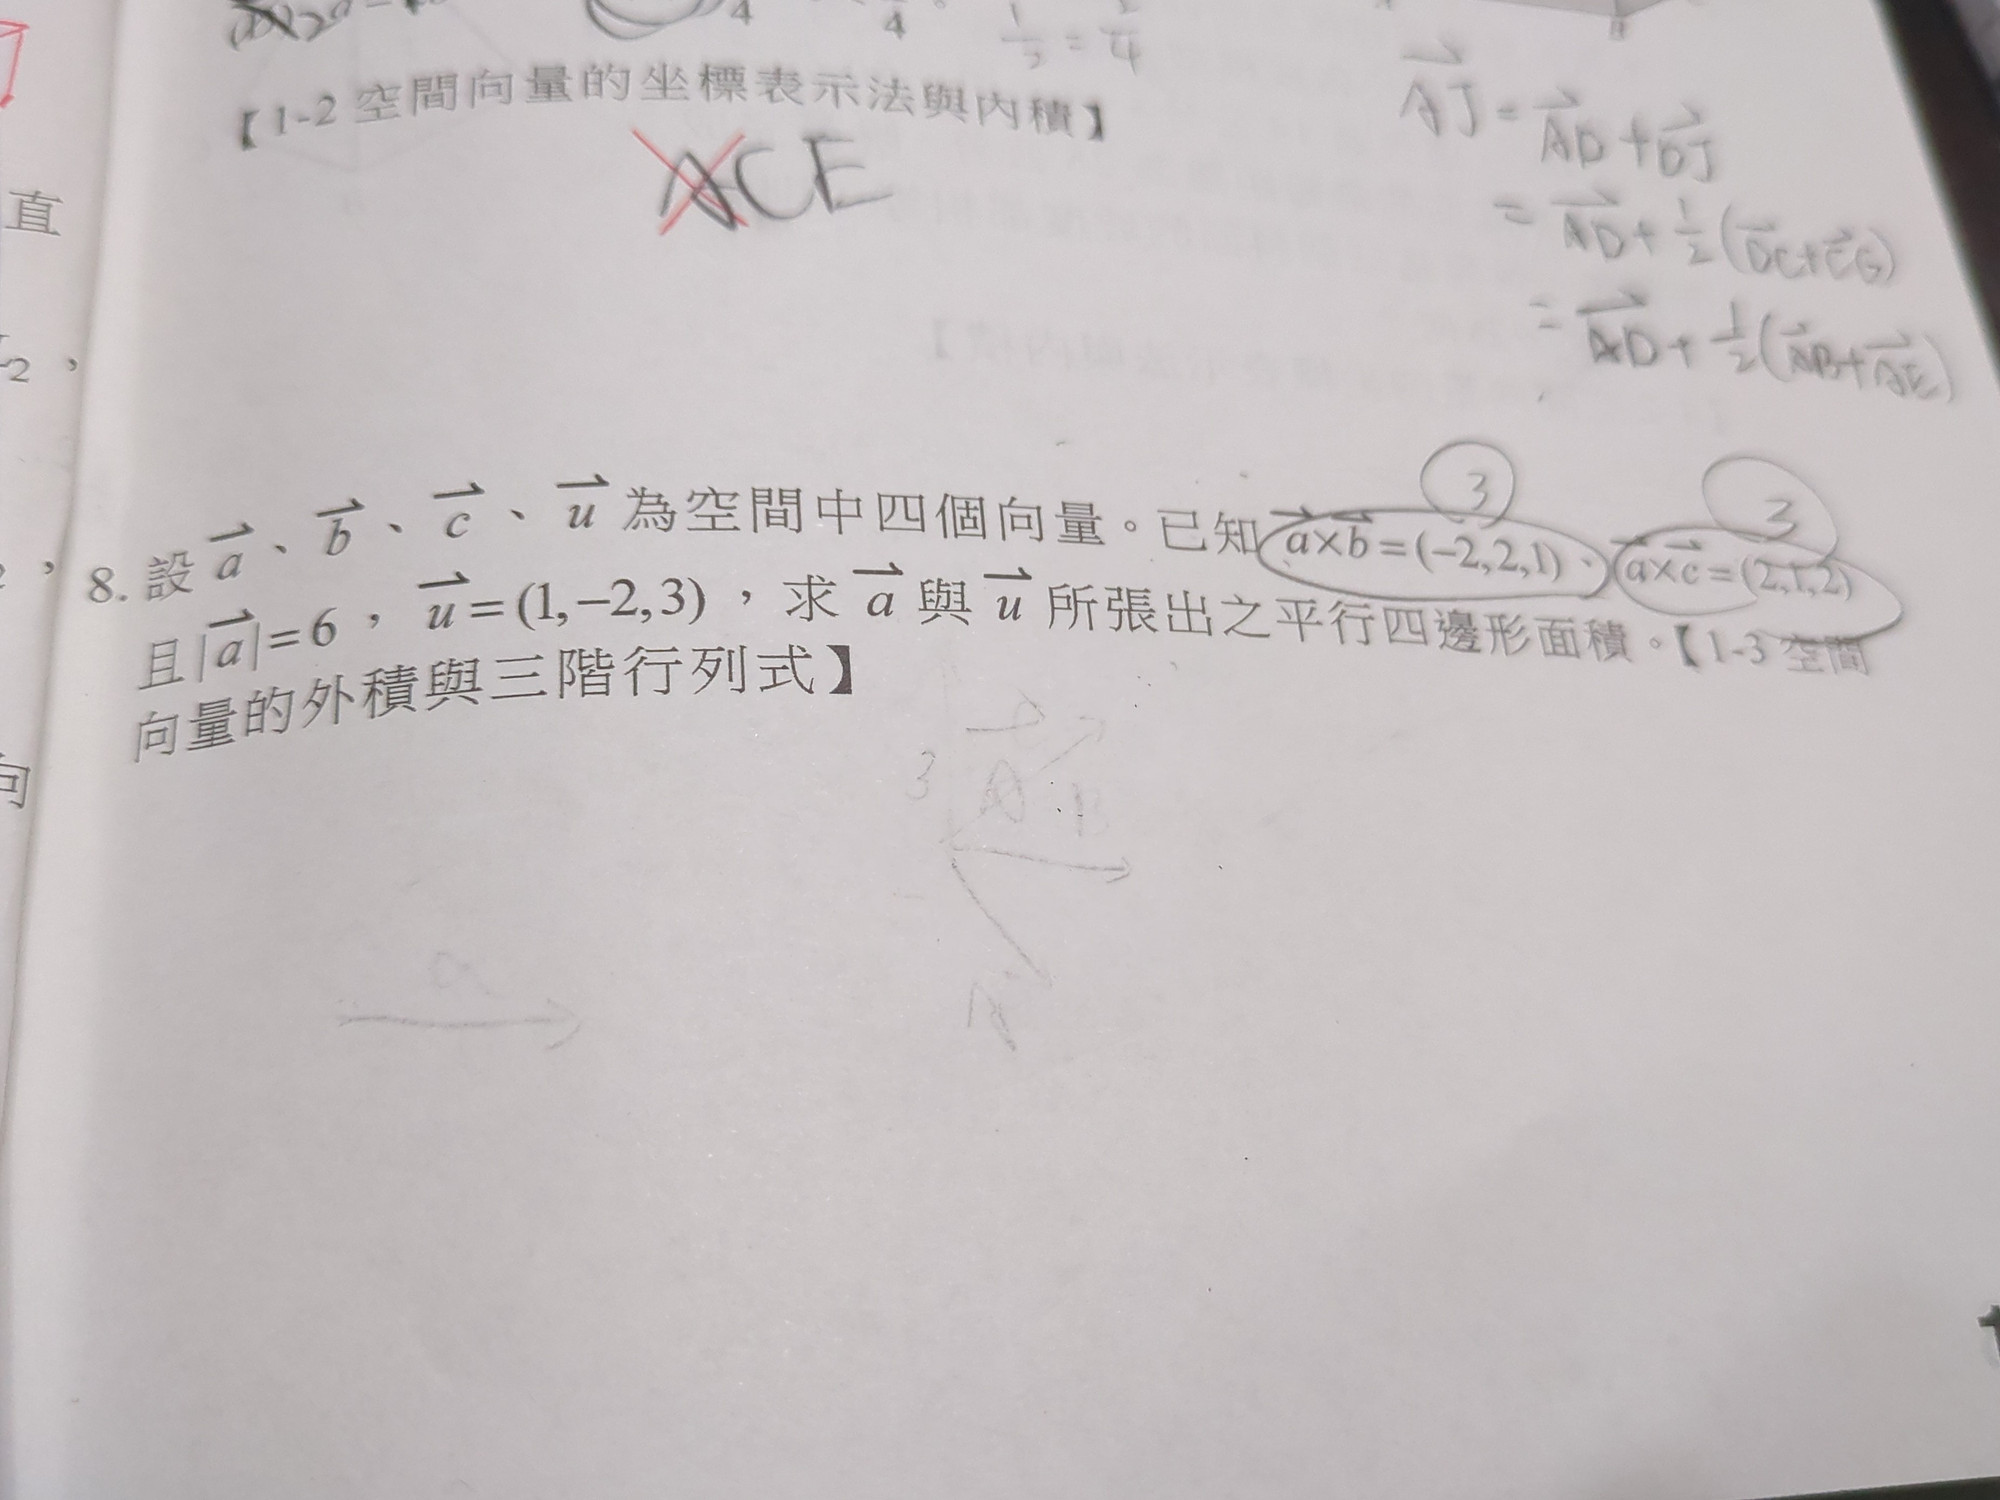 4
4
1/2 = 2/4
【1-2 空間向量的坐標表示法與內積】
ACE
AJ = AD + DJ
= AD + 1/2(DC+CG)
= AD + 1/2(AB+AE)
直
2，
3
3
8. 設 a、b、c、u 為空間中四個向量。已知 a×b=(−2,2,1)、a×c=(2,1,2)
且|a|=6，u=(1,−2,3)，求 a 與 u 所張出之平行四邊形面積。【1-3 空間
向量的外積與三階行列式】
向
3
a